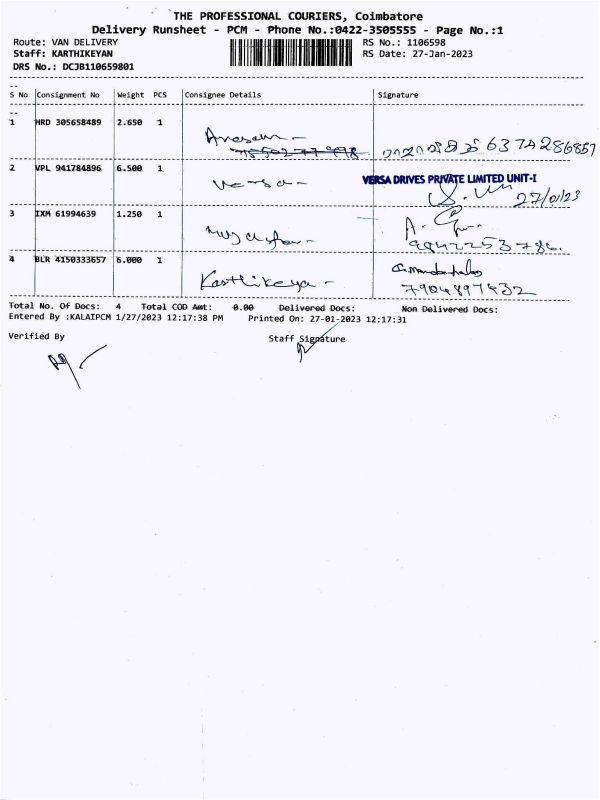 THE PROFESSIONAL COURIERS, Coimbatore
Delivery Runsheet - PCM - Phone No.:0422-3505555 - Page No.:1
Route: VAN DELIVERY
RS No.: 1106598
Staff: KARTHIKEYAN
RS Date: 27-Jan-2023
DRS No.: DCJB110659801
S No Consignment No Weight PCS Consignee Details Signature
1 HRD 305658489 2.650 1
6374286857
2 VPL 941784896 6.500 1 Versa- VERSA DRIVES PRIVATE LIMITED UNIT-I
27/01/23
3 IXM 61994639 1.250 1
9842253786.
4 BLR 4150333657 6.000 1 Karthikeya -
7904897432
Total No. Of Docs: 4 Total COD Amt: 0.00 Delivered Docs: Non Delivered Docs:
Entered By :KALAIPCM 1/27/2023 12:17:38 PM Printed On: 27-01-2023 12:17:31
Verified By Staff Signature